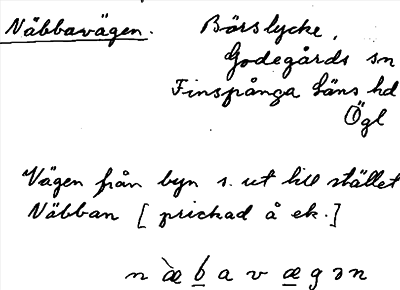 Näbbavägen. Börslycke,
Godegårds sn
Finspånga läns hd
Ögl
Vägen från byn s. ut till stället
Näbban [prickad å ek.]
n æ̀ b a v æ g ə n